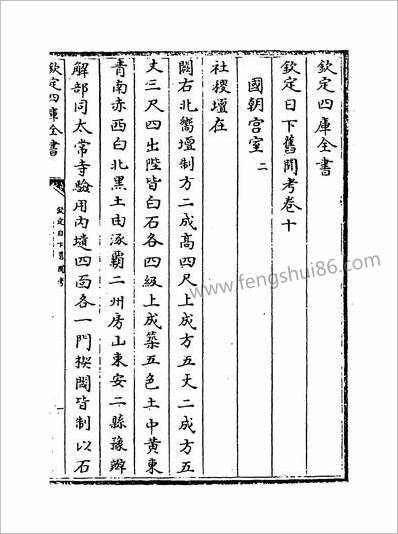 欽定四庫全書
欽定日下舊聞考卷十
國朝宫室 二
社稷壇在
闕右北嚮壇制方二成高四尺上成方五丈二成方五
丈三尺四出陛皆白石各四級上成築五色土中黃東
青南赤西白北黑土由涿霸二州房山東安二縣豫辦
解部同太常寺驗用內壝四面各一門楔閾皆制以石
欽定四庫全書
欽定日下舊聞考
一
www.fengshui86.com